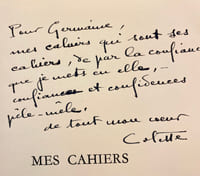 Pour Germaine,
mes cahiers qui sont ses
cahiers, de par la confiance
que je mets en elle, —
confiances et confidences
pêle-mêle,
de tout mon cœur
Colette
MES CAHIERS